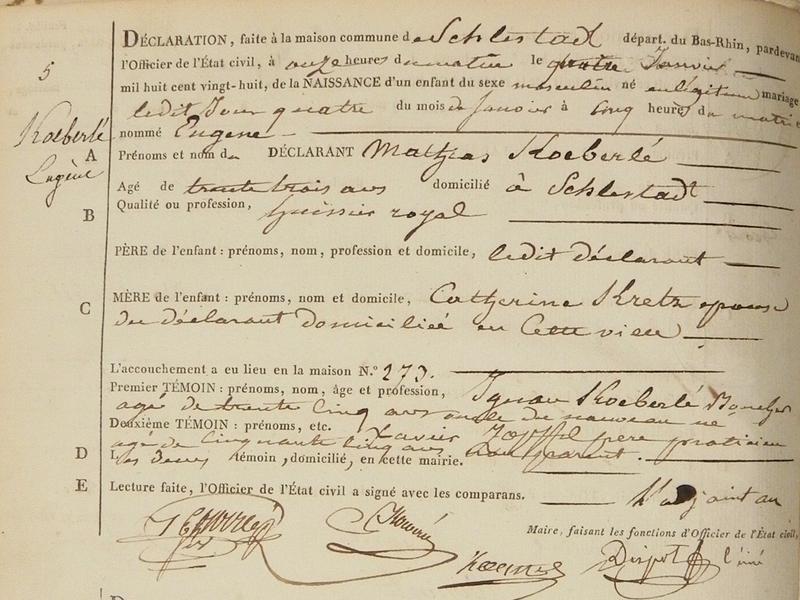 5
Koeberlé
Eugène
DÉCLARATION, faite à la maison commune de Schlestadt départ. du Bas-Rhin, pardevant
l'Officier de l'État civil, à onze heures du matin le quatre Janvier
mil huit cent vingt-huit, de la NAISSANCE d'un enfant du sexe masculin né en légitime mariage
ledit Jour quatre du mois de Janvier à cinq heures du matin
nommé Eugene
A Prénoms et nom du DÉCLARANT Mathias Koeberlé
Agé de trente trois ans domicilié à Schlestadt
B Qualité ou profession, huissier royal
PÈRE de l'enfant : prénoms, nom, profession et domicile, ledit déclarant
C MÈRE de l'enfant : prénoms, nom et domicile, Catherine Kretz epouse
du déclarant domiciliée en cette ville
L'accouchement a eu lieu en la maison N.° 273.
Premier TÉMOIN : prénoms, nom, âge et profession, Ignace Koeberlé
agé de trente cinq ans oncle du nouveau né
Deuxième TÉMOIN : prénoms, etc. Xavier père praticien
agé de cinquante cinq ans non parent.
D Les deux témoin, domicilié, en cette mairie.
E Lecture faite, l'Officier de l'État civil a signé avec les comparans. L'adjoint au
Maire, faisant les fonctions d'Officier de l'État civil,
Dispot l'ainé